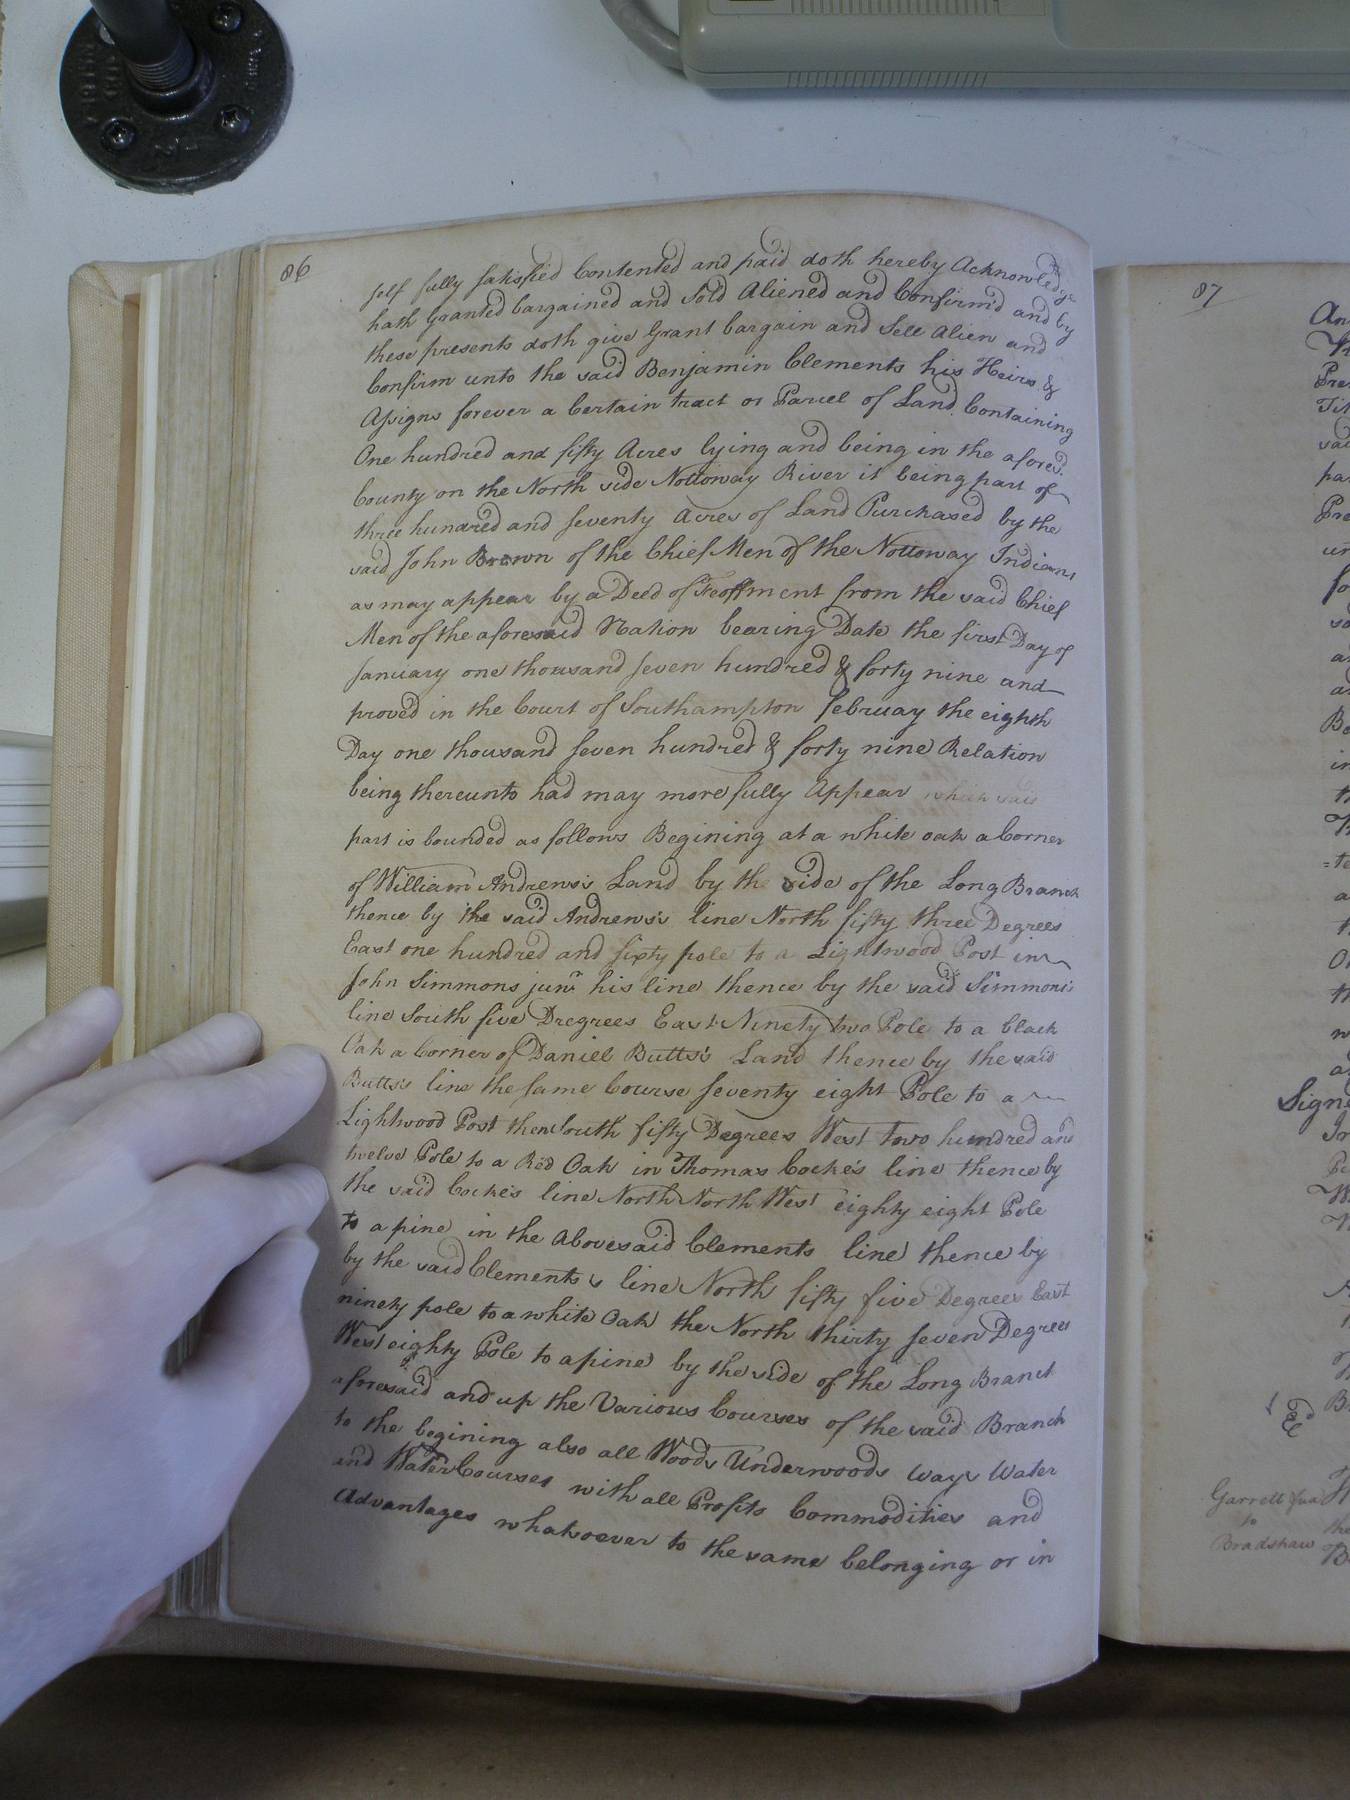 86
self fully satisfied Contented and paid doth hereby Acknowledge
hath Granted bargained and Sold Aliened and Confirm'd and by
these presents doth give Grant bargain and Sell Alien and
Confirm unto the said Benjamin Clements his Heirs &
Assigns forever a Certain tract or Parcel of Land Containing
One hundred and fifty Acres lying and being in the afores.d
County on the North side Nottoway River it being part of
three hundred and seventy Acres of Land Purchased by the
said John Brown of the Chief Men of the Nottoway Indians
as may appear by a Deed of Feoffment from the said Chief
Men of the aforesaid Nation bearing Date the first Day of
January one thousand seven hundred & forty nine and
proved in the Court of Southampton februay the eighth
Day one thousand seven hundred & forty nine Relation
being thereunto had may more fully Appear which said
part is bounded as follows Begining at a white oak a Corner
of William Andrews's Land by the side of the Long Branch
thence by the said Andrews's line North fifty three Degrees
East one hundred and sixty pole to a Lightwood Post in
John Simmons jun.r his line thence by the said Simmons's
line South five Dregrees East Ninety two Pole to a black
Oak a Corner of Daniel Butts's Land thence by the said
Butts's line the same Course seventy eight Pole to a
Lightwood Post then South fifty Degrees West two hundred and
twelve Pole to a Red Oak in Thomas Cocke's line thence by
the said Cocke's line North North West eighty eight Pole
to a pine in the Abovesaid Clements line thence by
by the said Clements's line North fifty five Degrees East
ninety pole to a white Oak the North thirty seven Degrees
West eighty Pole to a pine by the side of the Long Branch
aforesaid and up the Various Courses of the said Branch
to the begining also all Woods Underwoods ways Water
and Water Courses with all Profits Commodities and
Advantages whatsoever to the same belonging or in
87
Sign
Garrett
to
Bradshaw